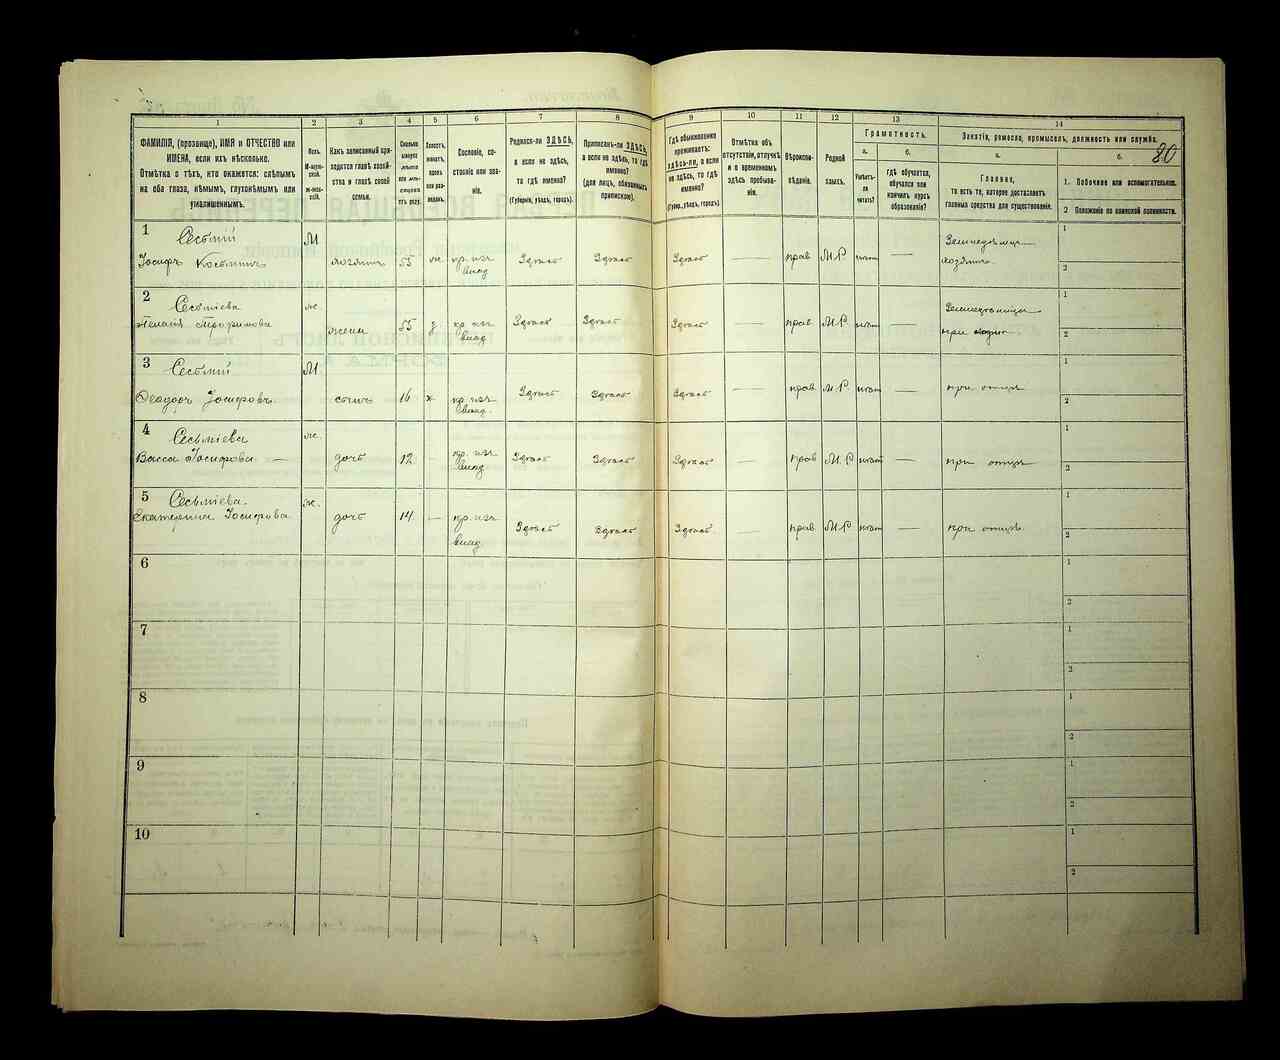 80
1 2 3 4 5 6 7 8 9 10 11 12 13 14
ФАМИЛІЯ, (прозвище), ИМЯ и ОТЧЕСТВО или
ИМЕНА, если ихъ нѣсколько.
Отмѣтка о тѣхъ, кто окажется: слѣпымъ
на оба глаза, нѣмымъ, глухонѣмымъ или
умалишеннымъ.
Полъ.
М-муж-
ской.
ж-жен-
скій.
Какъ записанный при-
ходится главѣ хозяй-
ства и главѣ своей
семьи.
Сколько
минуло
лѣтъ
или мѣ-
сяцевъ
отъ роду.
Холостъ,
женатъ,
вдовъ
или раз-
веденъ.
Сословіе, со-
стояніе или зва-
ніе.
Родился-ли ЗДѢСЬ,
а если не здѣсь,
то гдѣ именно?
(Губернія, уѣздъ, городъ).
Приписанъ-ли ЗДѢСЬ,
а если не здѣсь, то гдѣ
именно?
(для лицъ, обязанныхъ
припискою).
Гдѣ обыкновенно
проживаетъ:
здѣсь-ли, а если
не здѣсь, то гдѣ
именно?
(Губер., уѣздъ, городъ).
Отмѣтка объ
отсутствіи, отлучкѣ
и о временномъ
здѣсь пребыва-
ніи.
Вѣроиспо-
вѣданіе.
Родной
языкъ.
Грамотность.
а. б.
Умѣетъ-
ли
читать?
Гдѣ обучается,
обучался или
кончилъ курсъ
образованія?
Занятіе, ремесло, промыселъ, должность или служба.
а. б.
Главное,
то есть то, которое доставляетъ
главныя средства для существованія.
1. Побочное или вспомогательное.
2 Положеніе по воинской повинности.
1 Сесьмій М 1
Іосифъ Косьминъ хозяинъ 55 ж кр. изъ Здѣсь Здѣсь Здѣсь — прав М.Р нѣт — Земледѣлец
влад хозяинъ 2
2 Сесьміева ж 1
Пелагія Трофимова жена 55 з кр. изъ Здѣсь Здѣсь Здѣсь — прав М.Р нѣт —
влад при 2
3 Сесьмій М 1
Феодоръ Іосифовъ сынъ 16 х кр. изъ Здѣсь Здѣсь Здѣсь — прав М.Р нѣт — при отцѣ
влад. 2
4 Сесьміева ж. 1
Васса Іосифова — дочь 12 – кр. изъ Здѣсь Здѣсь Здѣсь — прав М.Р нѣт — при отцѣ
влад 2
5 Сесьміева. ж. 1
Екатерина Іосифова дочь 14. – кр. изъ Здѣсь Здѣсь Здѣсь. — прав М.Р нѣт — при отцѣ
влад 2
6 1
2
7 1
2
8 1
2
9 1
2
10 1
2